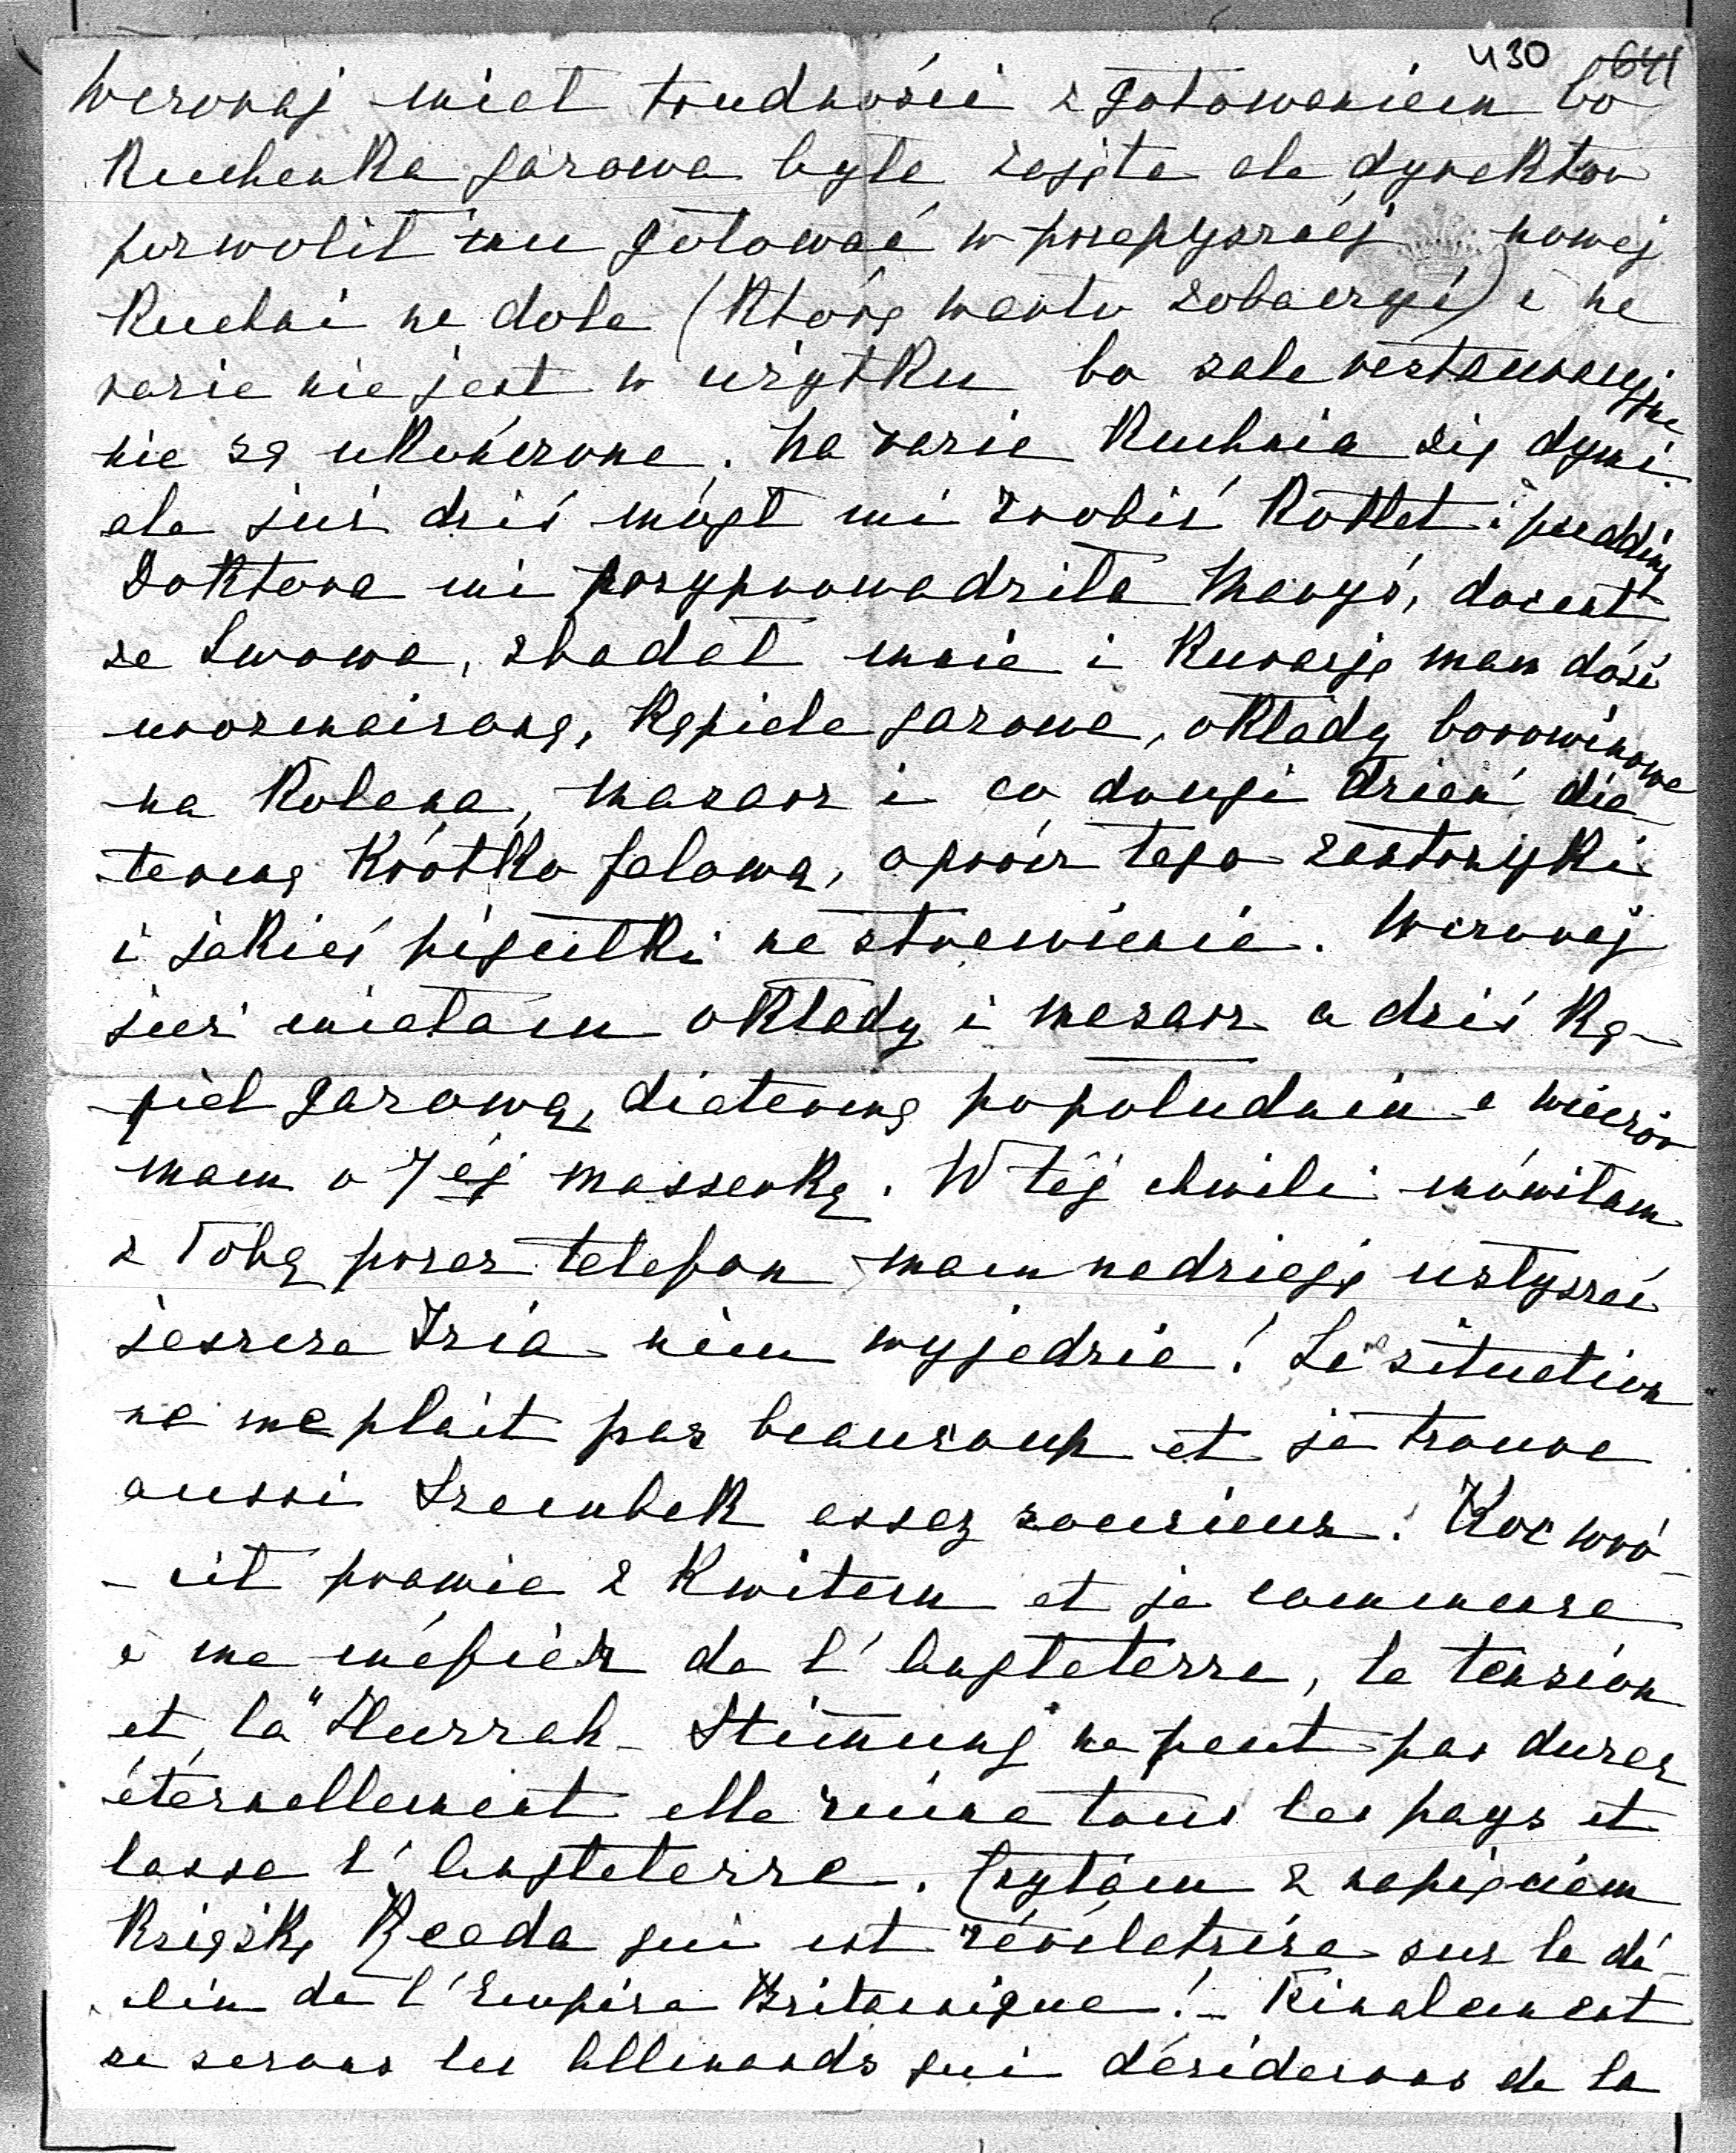 430 641
Wczoraj miał trudności z gotowaniem bo
Kuchenka gazowa była zajęta ale dyrektor
pozwolił mu gotować w przepysznéj nowej
Kuchni na dole (Którą warto zobaczyć) i na
razie nie jest w użytku bo sale restauracyjne
nie są ukończone. Na razie Kuchnia się dymi
ale już dziś mógł mi zrobić Kotlet i pudding
Doktora mi przyprowadziła Marys, docent
ze Lwowa, zbadał mnie i Kurację mam dość
urozmaiconą, Kąpiele gazowe, okłady borowinowe
na Kolana, masaż i co drugi dzień die-
termę Krótko falową, oprócz tego zastrzyki
i jakieś pigułki na strawienie. Wczoraj
już miałam okłady i masaż a dziś Ką-
piel gazową, dietermę popołudniu a wieczór
mam o 7 éj masserkę. W téj chwili mówiłam
z Tobą przez telefon mam nadzieję usłyszeć
jeszcze Izia nim wyjedzie! La situation
ne me plait pas beaucoup et je trouve
aussi Szembek assez soucieux. Koc wró-
-cił prawie z Kwitem et je commence
à me méfier de l'Angleterre, la tension
et la "Hurrah-Stimmung ne peut pas durer
éternellement elle ruine tous les pays et
lasse l'Angleterre. Czytam z napięciem
Książkę Reeda qui est révélatrice sur le dé-
clin de l'Empire Britannique!- Finalement
ce serons les Allemands qui désiderons de la